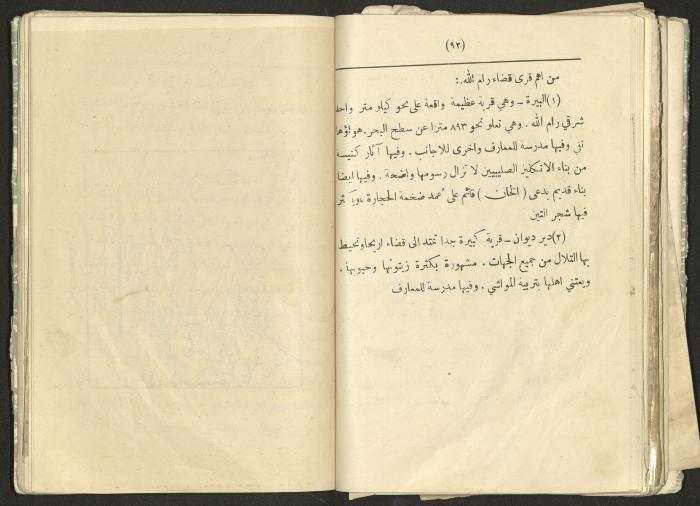 (٩٢)
من اهم قرى قضاء رام الله :
(١) البيرة ــ وهي قرية عظيمة واقعة على نحو كيلو متر واحد
شرقي رام الله . وهي تعلو نحو ٨٩٣ مترا عن سطح البحر . هواؤها
نقي وفيها مدرسة للمعارف واخرى للاجانب . وفيها آثار كنيسة
من بناء الانكليز الصليبيين لا تزال رسومها واضحة . وفيها ايضا
بناء قديم يدعى ( الخان ) قائم على عُمد ضخمة الحجارة ، ويكثر
فيها شجر التين
(٢) دير ديوان ــ قرية كبيرة جدا تمتد الى قضاء اريحا وتحيط
بها التلال من جميع الجهات . مشهورة بكثرة زيتونها وحبوبها .
ويعتني اهلها بتربية المواشي . وفيها مدرسة للمعارف